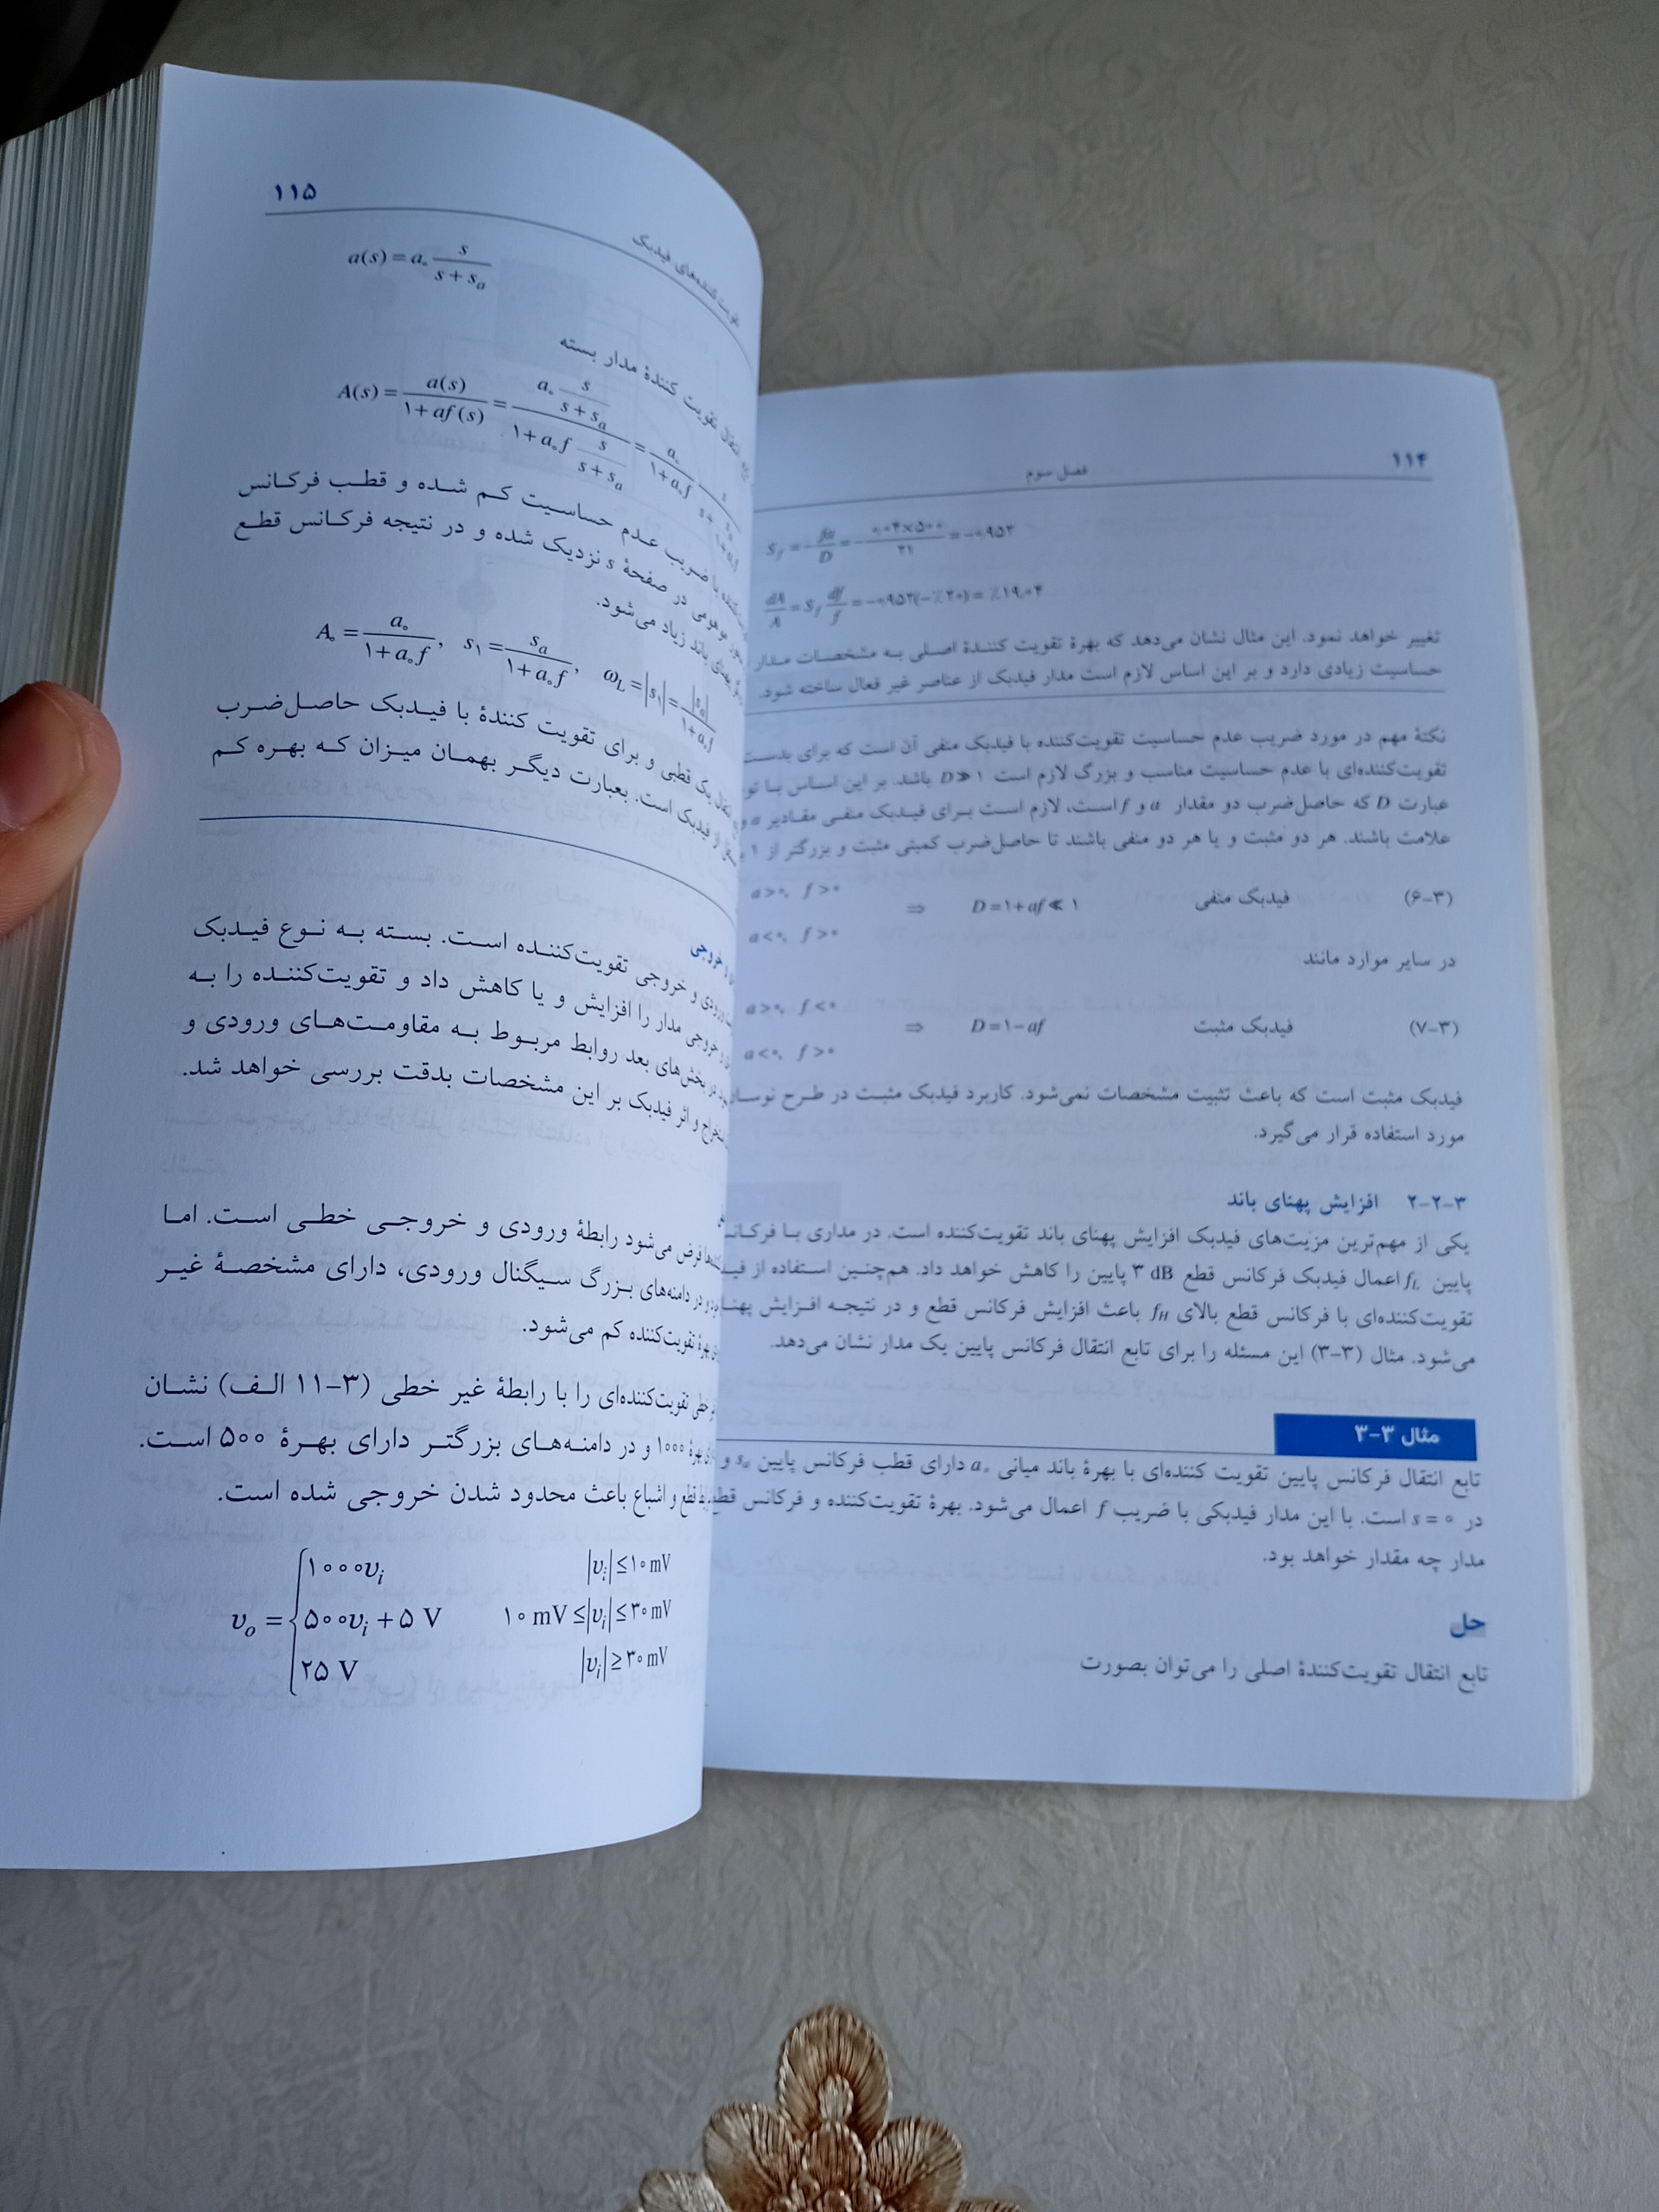 ۱۱۴
فصل سوم
S_f = -fa/D = -۰٫۰۴×۵۰۰/۲۱ = -۰٫۹۵۲
dA/A = S_f df/f = -۰٫۹۵۲(-٪۲۰) = ٪۱۹٫۰۴
تغییر خواهد نمود. این مثال نشان می‌دهد که بهرهٔ تقویت کنندهٔ اصلی به مشخصات مدار
حساسیت زیادی دارد و بر این اساس لازم است مدار فیدبک از عناصر غیر فعال ساخته شود.
نکتهٔ مهم در مورد ضریب عدم حساسیت تقویت‌کننده با فیدبک منفی آن است که برای بدست
تقویت‌کننده‌ای با عدم حساسیت مناسب و بزرگ لازم است D≫۱ باشد. بر این اساس با
عبارت D که حاصل‌ضرب دو مقدار a و f است، لازم است برای فیدبک منفی مقادیر a و
علامت باشند. هر دو مثبت و یا هر دو منفی باشند تا حاصل‌ضرب کمیتی مثبت و بزرگتر از ۱
a>۰, f>۰
(۳-۶) فیدبک منفی D=۱+af≪۱ ⇒
a<۰, f>۰
در سایر موارد مانند
a>۰, f<۰
(۳-۷) فیدبک مثبت D=۱-af ⇒
a<۰, f>۰
فیدبک مثبت است که باعث تثبیت مشخصات نمی‌شود. کاربرد فیدبک مثبت در طرح
مورد استفاده قرار می‌گیرد.
۳-۲-۲ افزایش پهنای باند
یکی از مهم‌ترین مزیت‌های فیدبک افزایش پهنای باند تقویت‌کننده است. در مداری با
پایین f_L اعمال فیدبک فرکانس قطع ۳ dB پایین را کاهش خواهد داد. هم‌چنین استفاده از
تقویت‌کننده‌ای با فرکانس قطع بالای f_H باعث افزایش فرکانس قطع و در نتیجه افزایش
می‌شود. مثال (۳-۳) این مسئله را برای تابع انتقال فرکانس پایین یک مدار نشان می‌دهد.
مثال ۳-۳
تابع انتقال فرکانس پایین تقویت کننده‌ای با بهرهٔ باند میانی a۰ دارای قطب فرکانس پایین s_a و
در s=۰ است. با این مدار فیدبکی با ضریب f اعمال می‌شود. بهرهٔ تقویت‌کننده و فرکانس قطع
مدار چه مقدار خواهد بود.
حل
تابع انتقال تقویت‌کنندهٔ اصلی را می‌توان بصورت
۱۱۵
تقویت‌کننده‌های فیدبک
a(s) = a۰ s/(s+s_a)
انتقال تقویت کنندهٔ مدار بسته
A(s) = a(s)/(۱+af(s)) = (a۰ s/(s+s_a))/(۱+a۰f s/(s+s_a)) = a۰/(۱+a۰f) s/(s+s_a/(۱+a۰f))
ضریب عدم حساسیت کم شده و قطب فرکانس
موهومی در صفحهٔ s نزدیک شده و در نتیجه فرکانس قطع
پهنای باند زیاد می‌شود.
A۰ = a۰/(۱+a۰f), s۱ = s_a/(۱+a۰f), ω_L = |s۱| = |s_a|/(۱+a۰f)
انتقال یک قطبی و برای تقویت کنندهٔ با فیدبک حاصل‌ضرب
از فیدبک است. بعبارت دیگر بهمان میزان که بهره کم
و خروجی
ورودی و خروجی تقویت‌کننده است. بسته به نوع فیدبک
و خروجی مدار را افزایش و یا کاهش داد و تقویت‌کننده را به
در بخش‌های بعد روابط مربوط به مقاومت‌های ورودی و
استخراج و اثر فیدبک بر این مشخصات بدقت بررسی خواهد شد.
فرض می‌شود رابطهٔ ورودی و خروجی خطی است. اما
و در دامنه‌های بزرگ سیگنال ورودی، دارای مشخصهٔ غیر
بهرهٔ تقویت‌کننده کم می‌شود.
خطی تقویت‌کننده‌ای را با رابطهٔ غیر خطی (۳-۱۱ الف) نشان
بهرهٔ ۱۰۰۰ و در دامنه‌های بزرگتر دارای بهرهٔ ۵۰۰ است.
قطع و اشباع باعث محدود شدن خروجی شده است.
۱۰۰۰υ_i |υ_i|≤۱۰ mV
υ_o = { ۵۰۰υ_i + ۵ V ۱۰ mV≤|υ_i|≤۳۰ mV
۲۵ V |υ_i|≥۳۰ mV